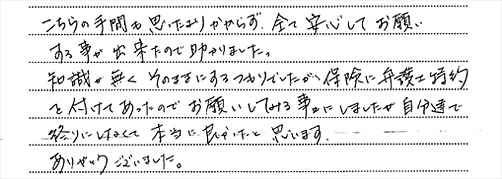 こちらの手間も思ったよりかからず、全て安心してお願い
する事が出来たので助かりました。
知識が無くそのままにするつもりでしたが保険に弁護士特約
を付けてあったのでお願いしてみる事にしましたが自分達で
終りにしなくて本当に良かったと思います。
ありがとうございました。